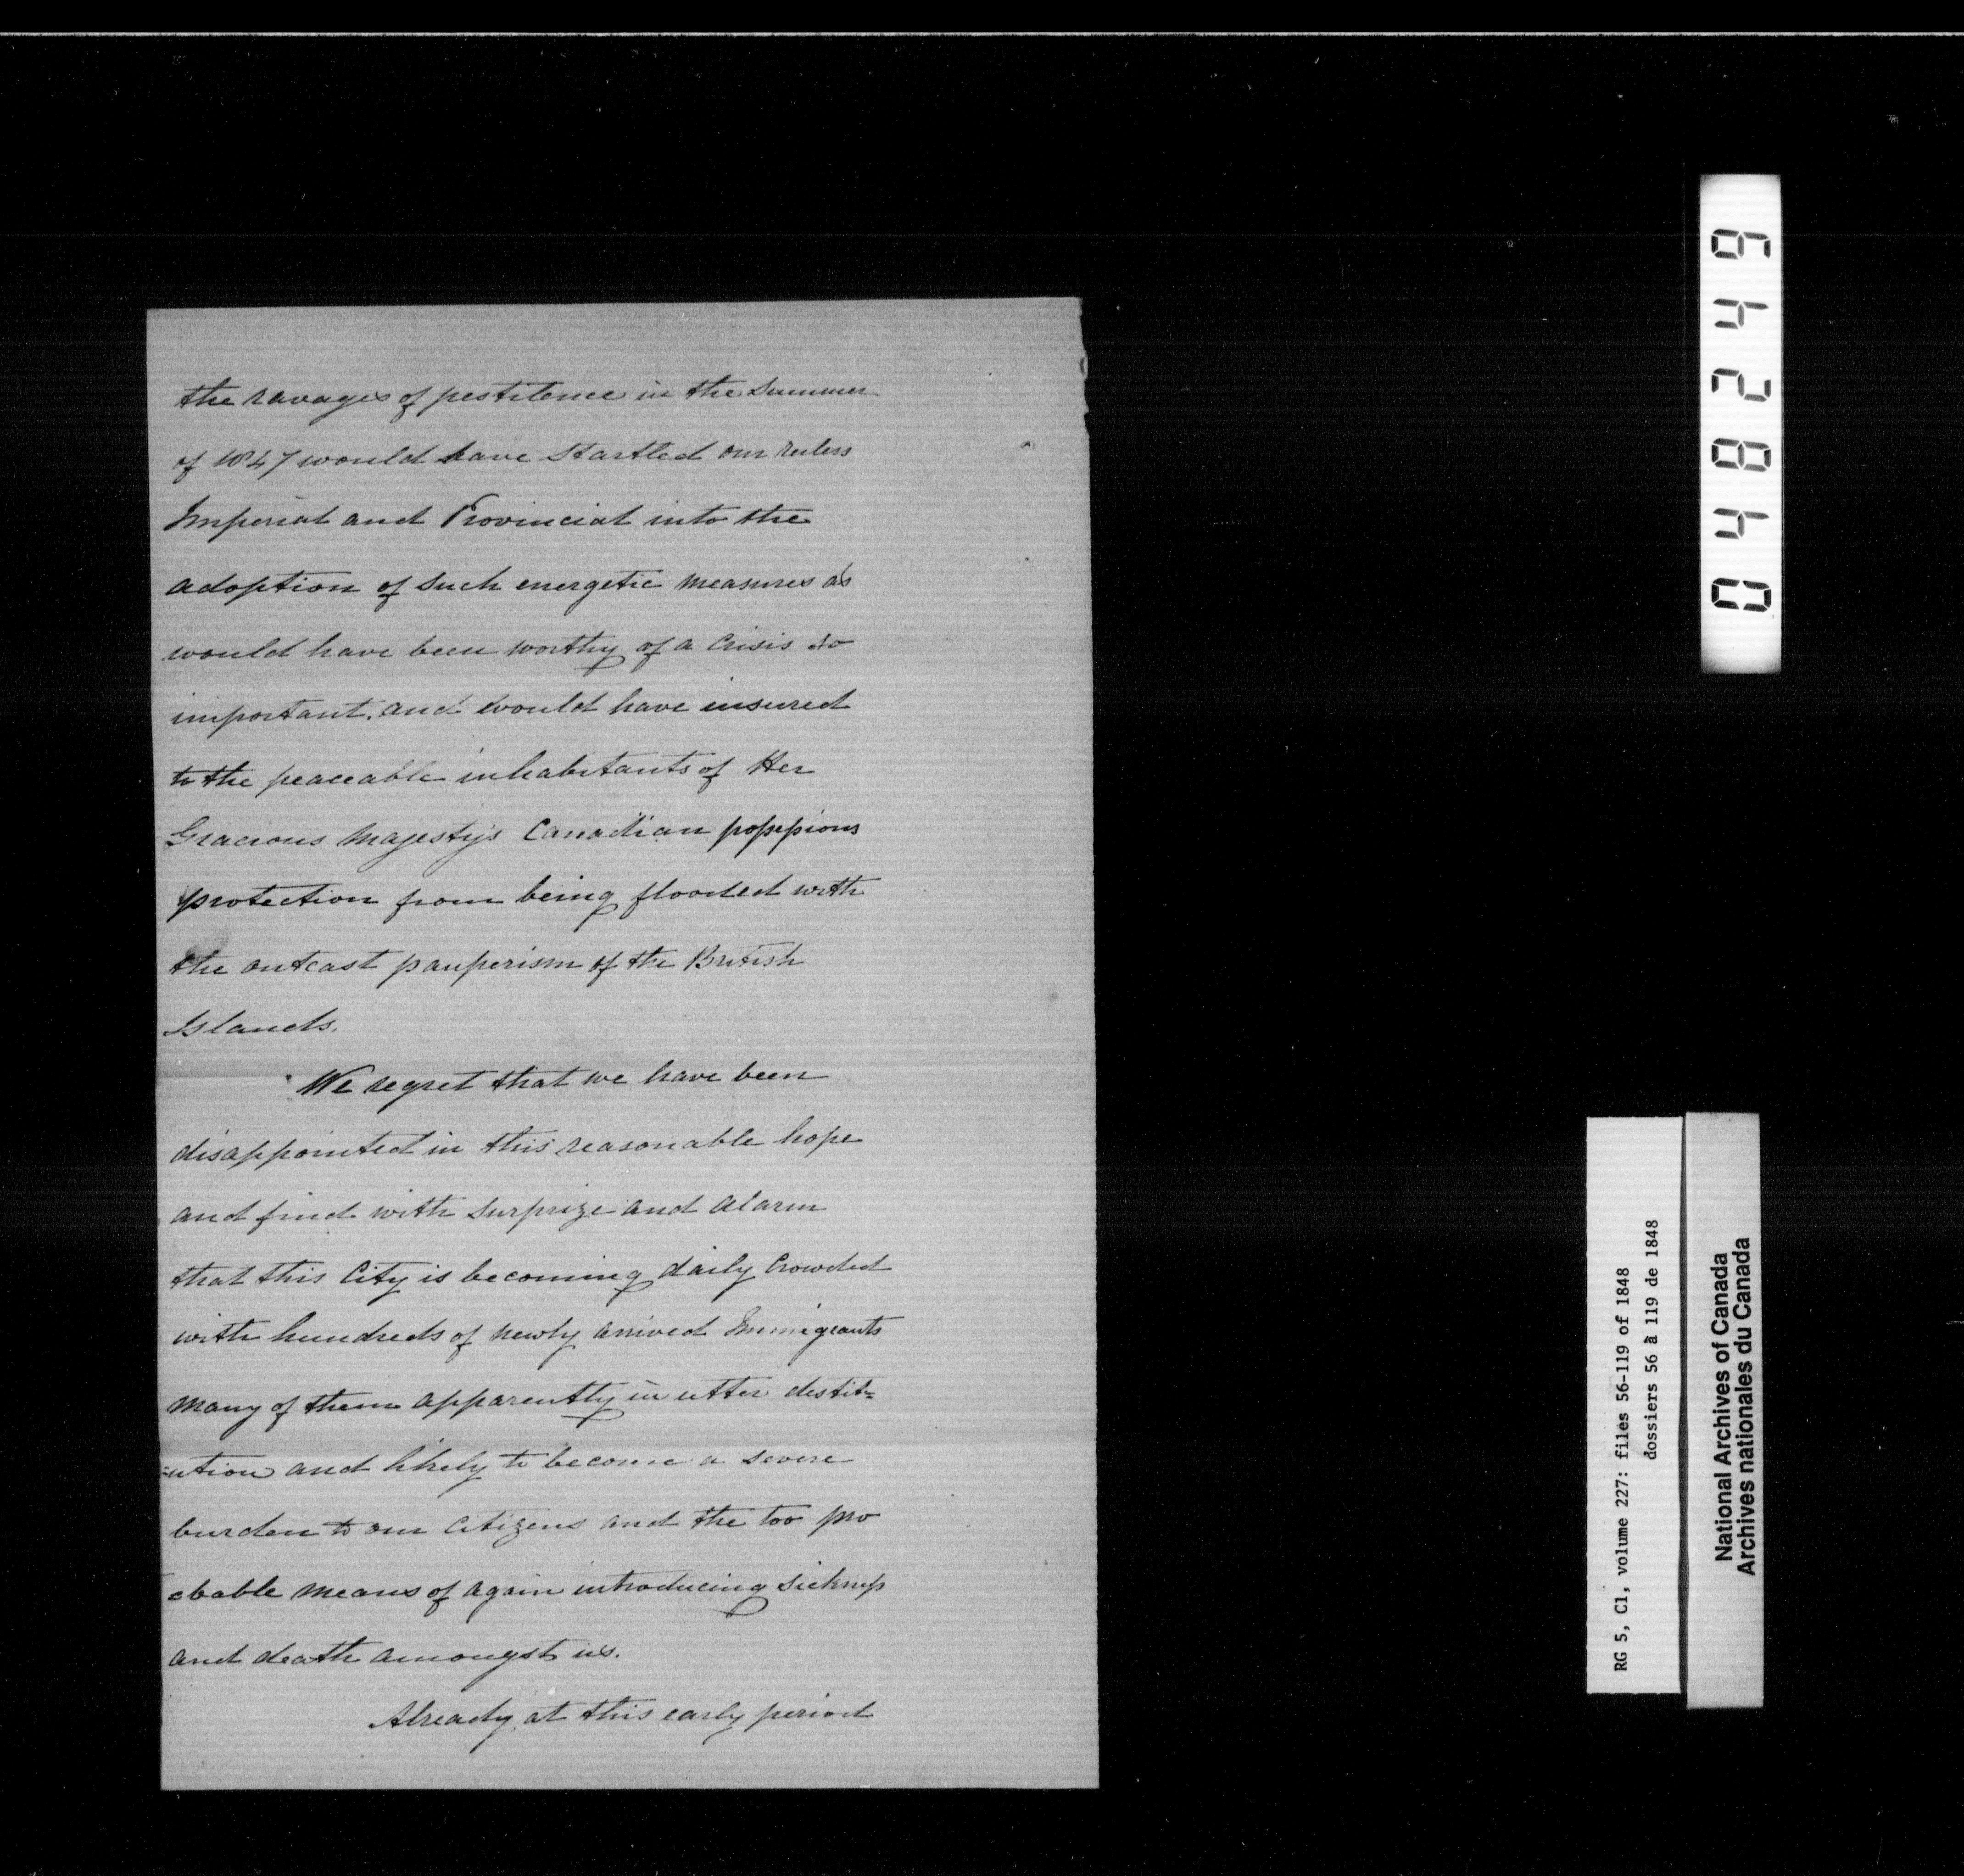 the ravages of pestilence in the Summer
of 1847 would have startled our rulers
Imperial and Provincial into the
adoption of such energetic measures as
would have been worthy of a crisis so
important, and would have insured
to the peaceable inhabitants of Her
Gracious Majesty's Canadian possessions
protection from being flooded with
the outcast pauperism of the British
Islands.
We regret that we have been
disappointed in this reasonable hope
and find with surprize and alarm
that this City is becoming daily Crowded
with hundreds of newly arrived Immigrants
many of them apparently in utter destit=
=ution and likely to become a severe
burden to our Citizens and the too pro
=bable means of again introducing sickness
and death amongst us.
Already at this early period
048249
RG 5, C1, volume 227: files 56-119 of 1848
dossiers 56 à 119 de 1848
National Archives of Canada
Archives nationales du Canada